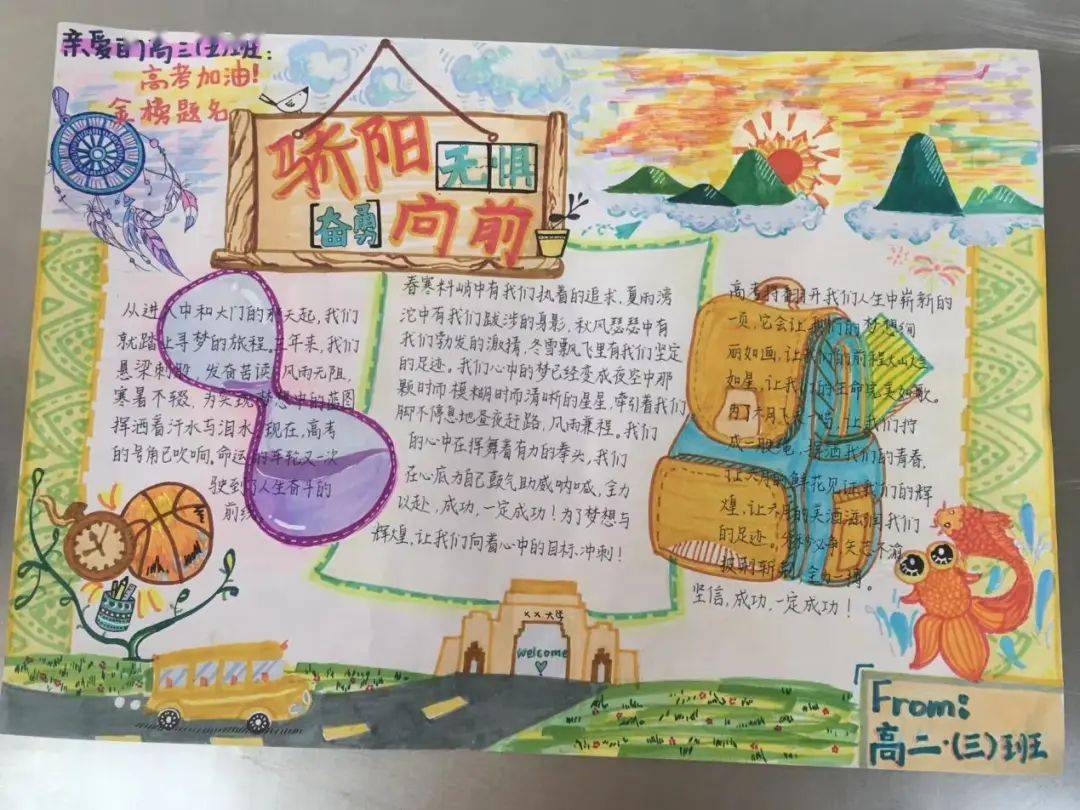 亲爱的高三(五)班:
高考加油!
金榜题名
骄阳无惧
奋勇向前
从进入中和大门的那天起,我们
就踏上寻梦的旅程。三年来,我们
悬梁刺股,发奋苦读,风雨无阻,
寒暑不辍,为实现梦想中的蓝图
挥洒着汗水与泪水。现在,高考
的号角已吹响。命运的车轮又一次
驶到了人生奋斗的
前线
春寒料峭中有我们执着的追求,夏雨滂
沱中有我们跋涉的身影,秋风瑟瑟中有
我们勃发的激情,冬雪飘飞里有我们坚定
的足迹。我们心中的梦已经变成夜空中那
颗时而模糊时而清晰的星星,牵引着我们
脚不停息地昼夜赶路,风雨兼程。我们
的心中在挥舞着有力的拳头,我们
在心底为自己鼓气助威呐喊,全力
以赴,成功,一定成功!为了梦想与
辉煌,让我们向着心中的目标,冲刺!
高考将翻开我们人生中崭新的
一页,它会让我们的梦想绚
丽如画,让我们的前程灿
如星,让我们的生命完美如歌。
为了六月飞,让我们拧
成一股绳,挥洒我们的青春,
让六月的鲜花见证我们的辉
煌,让六月的美酒滋润我们
的足迹。分秒必争,矢志不渝,
披荆斩棘,全力一搏。
坚信,成功,一定成功!
××大学
welcome
From:
高二·(三)班